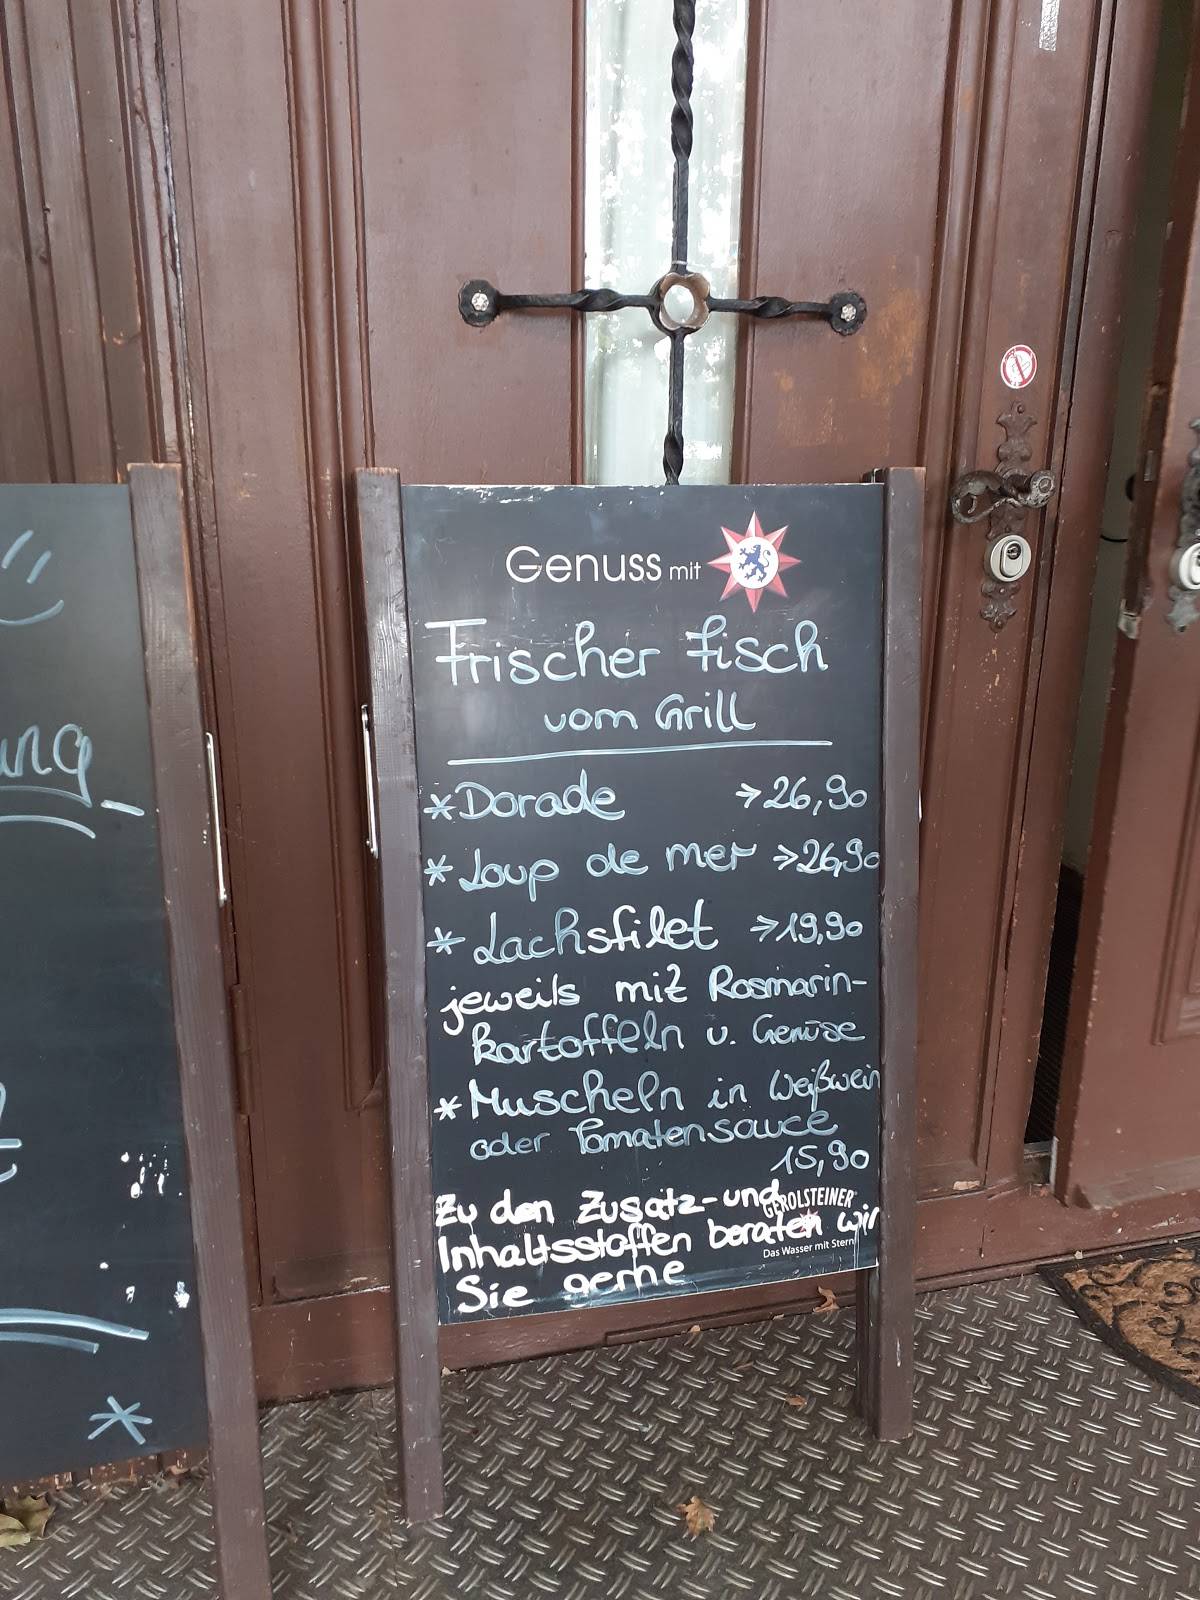 Genuss mit
Frischer Fisch
vom Grill
*Dorade → 26,90
*Loup de mer → 26,90
*Lachsfilet → 19,90
jeweils mit Rosmarin-
kartoffeln u. Gemüse
*Muscheln in Weißwein
oder Tomatensauce
15,90
Zu den Zusatz- und
Inhaltsstoffen beraten wir
Sie gerne
GEROLSTEINER
Das Wasser mit Stern
ung
*